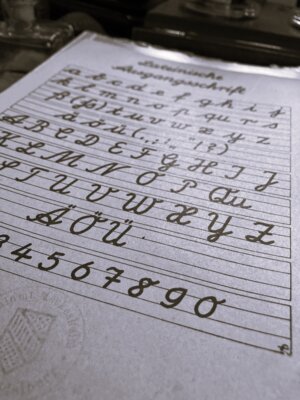 Lateinische
Ausgangsschrift
a b c d e f g h i j
k l m n o p q u r s
ß (β) t u v w x y z
ä ö ü ( , ; . : - " ! ? )
A B C D E F G H I J
K L M N O P Qu
S T U V W X Y Z
Ä Ö Ü
3 4 5 6 7 8 9 0